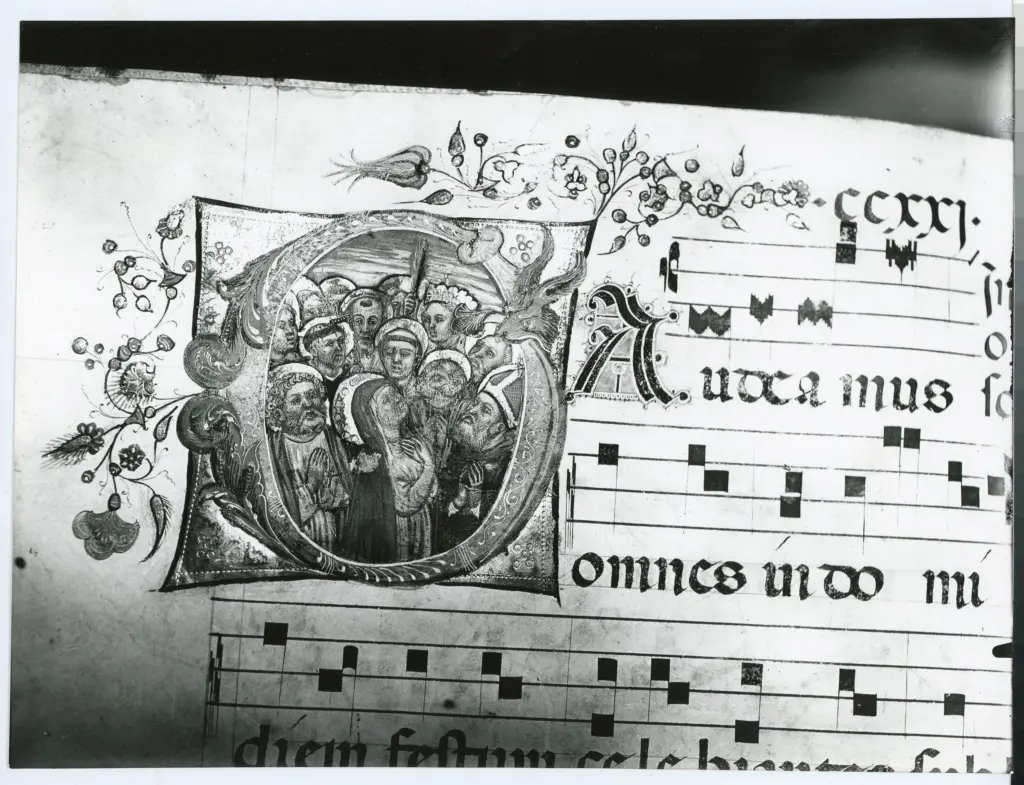 ·CCXXJ·
GAudea mus
omnes in do mi
diem festum cele brantes sub